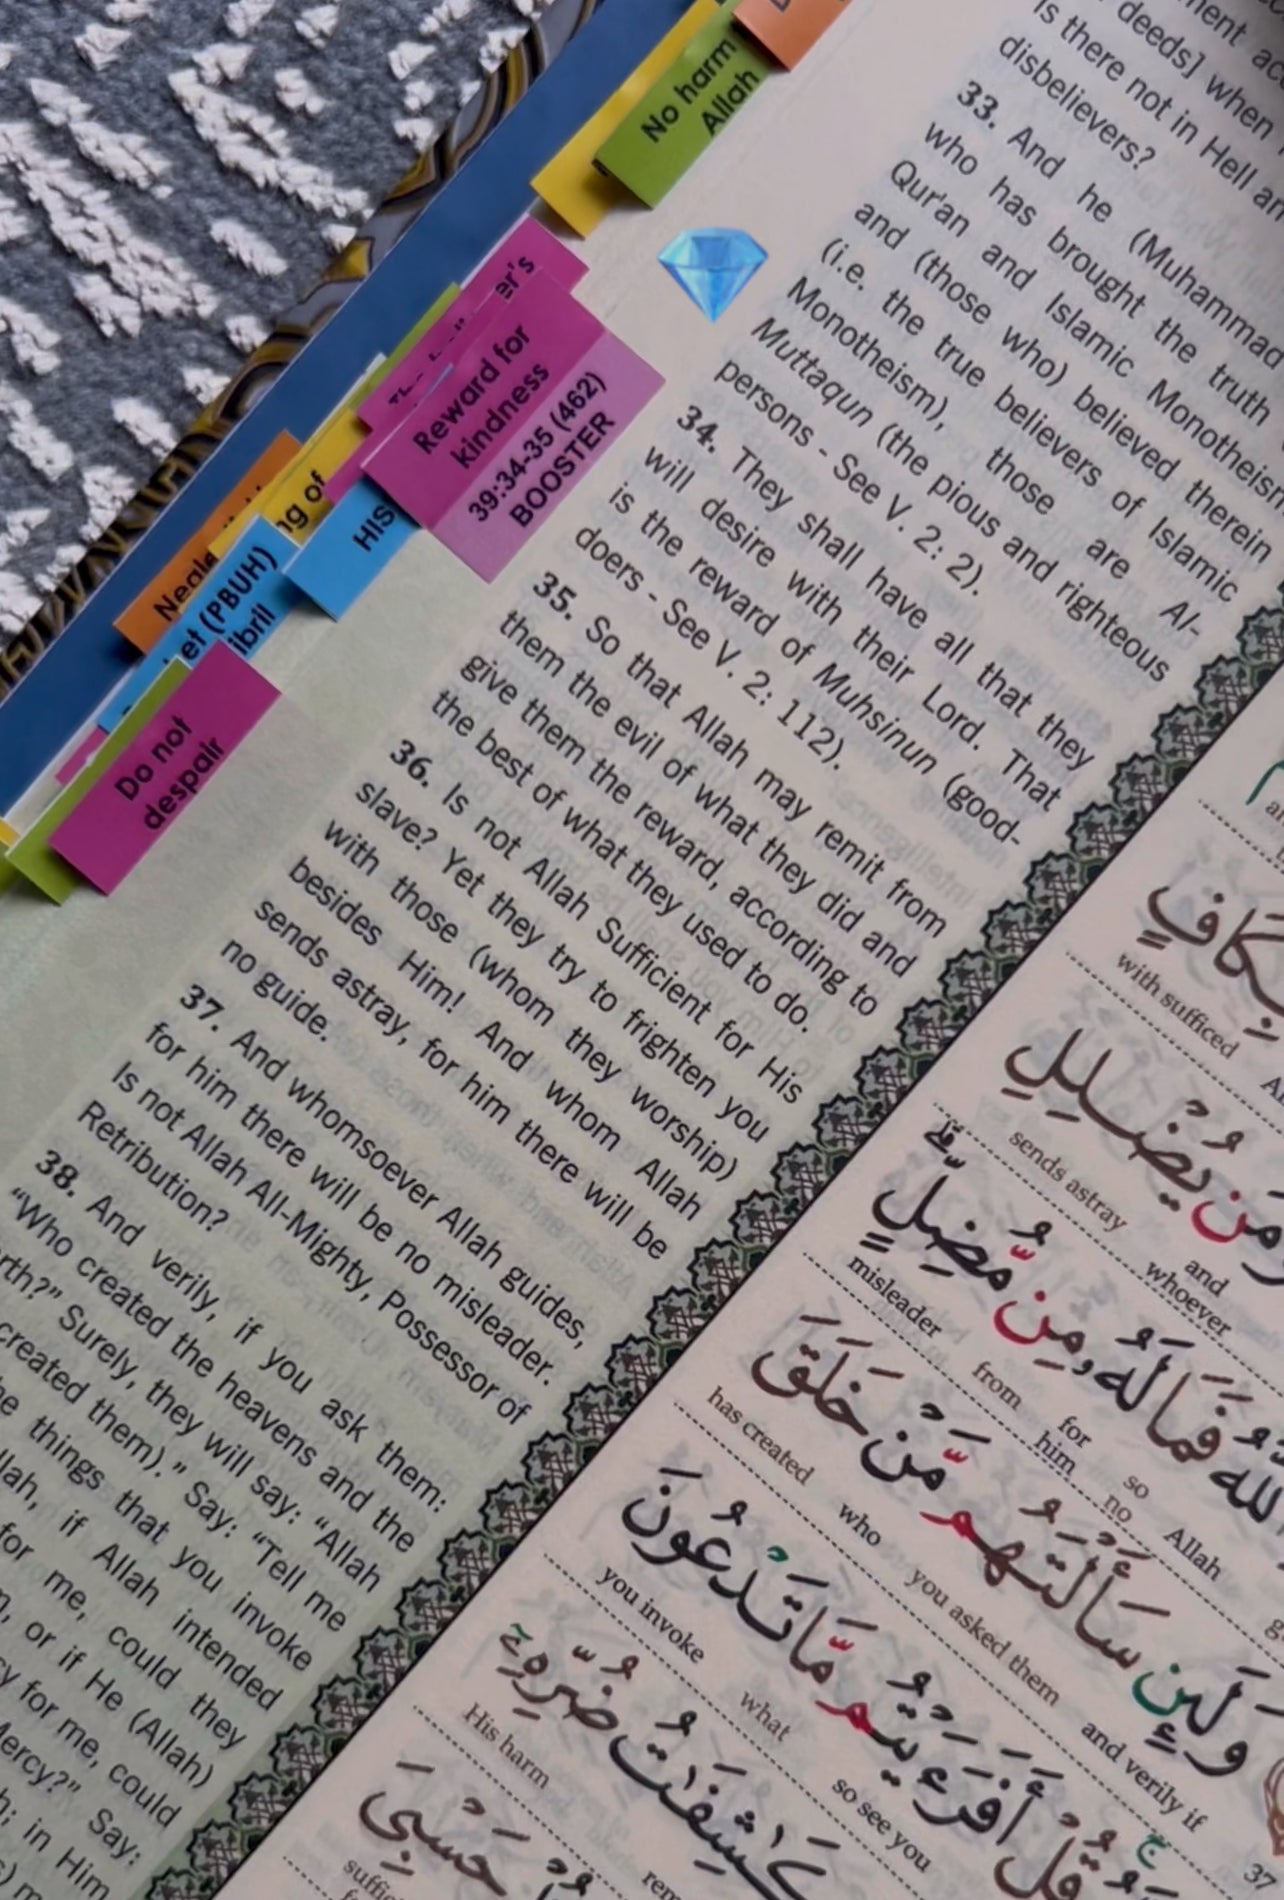 No harm
Allah
er's
Reward for
kindness
39:34-35 (462)
BOOSTER
ng of
HIS
et (PBUH)
ibril
Do not
despair
deeds] when
Is there not in Hell an
disbelievers?
33. And he (Muhammad
who has brought the truth
Qur'an and Islamic Monotheism
and (those who) believed therein
(i.e. the true believers of Islamic
Monotheism), those are Al-
Muttaqun (the pious and righteous
persons - See V. 2: 2).
34. They shall have all that they
will desire with their Lord. That
is the reward of Muhsinun (good-
doers - See V. 2: 112).
35. So that Allah may remit from
them the evil of what they did and
give them the reward, according to
the best of what they used to do.
36. Is not Allah Sufficient for His
slave? Yet they try to frighten you
with those (whom they worship)
besides Him! And whom Allah
sends astray, for him there will be
no guide.
37. And whomsoever Allah guides,
for him there will be no misleader.
Is not Allah All-Mighty, Possessor of
Retribution?
38. And verily, if you ask them:
"Who created the heavens and the
rth?" Surely, they will say: "Allah
created them)." Say: "Tell me
he things that you invoke
llah, if Allah intended
for me, could they
, or if He (Allah)
y for me, could
Mercy?" Say:
; in Him
بِكَافٍ
with sufficed
وَمَن يُضْلِلِ
sends astray and whoever
اللَّهُ فَمَا لَهُ مِن مُّضِلٍّ
misleader from for him so no Allah
وَلَئِن سَأَلْتَهُم مَّنْ خَلَقَ
has created who you asked them and verily if
قُلْ أَفَرَءَيْتُم مَّا تَدْعُونَ
you invoke what so see you
كَٰشِفَٰتُ ضُرِّهِ
His harm
حَسْبِيَ
37